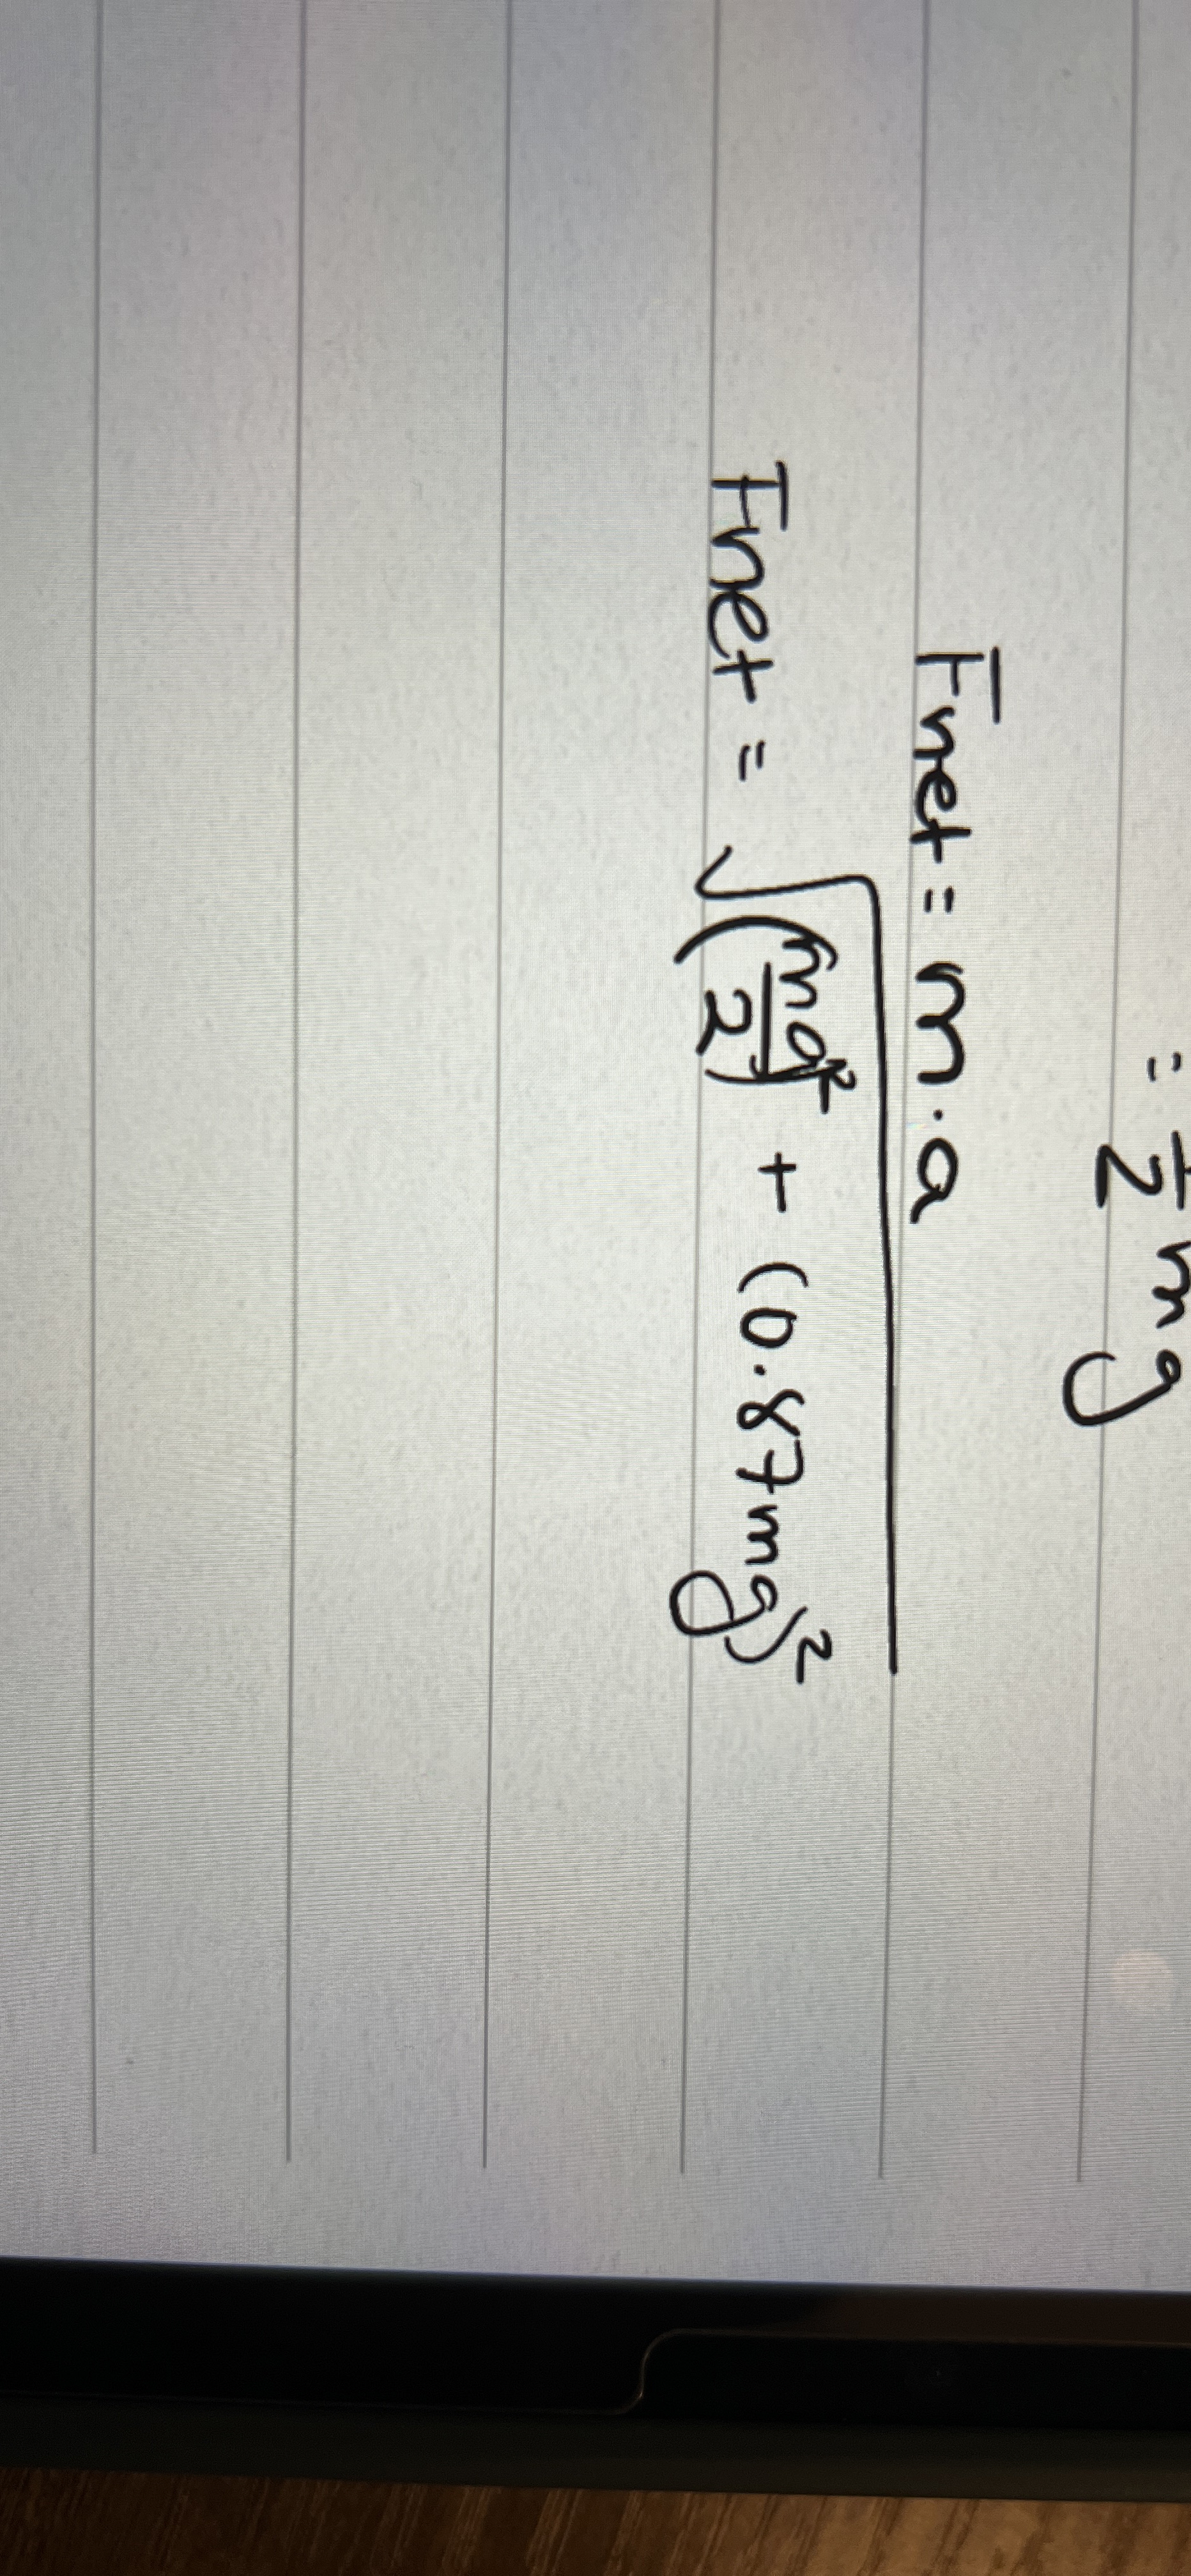 = 1/2 mg
Fnet = m·a
Fnet = √((mg/2)² + (0.87mg)²)